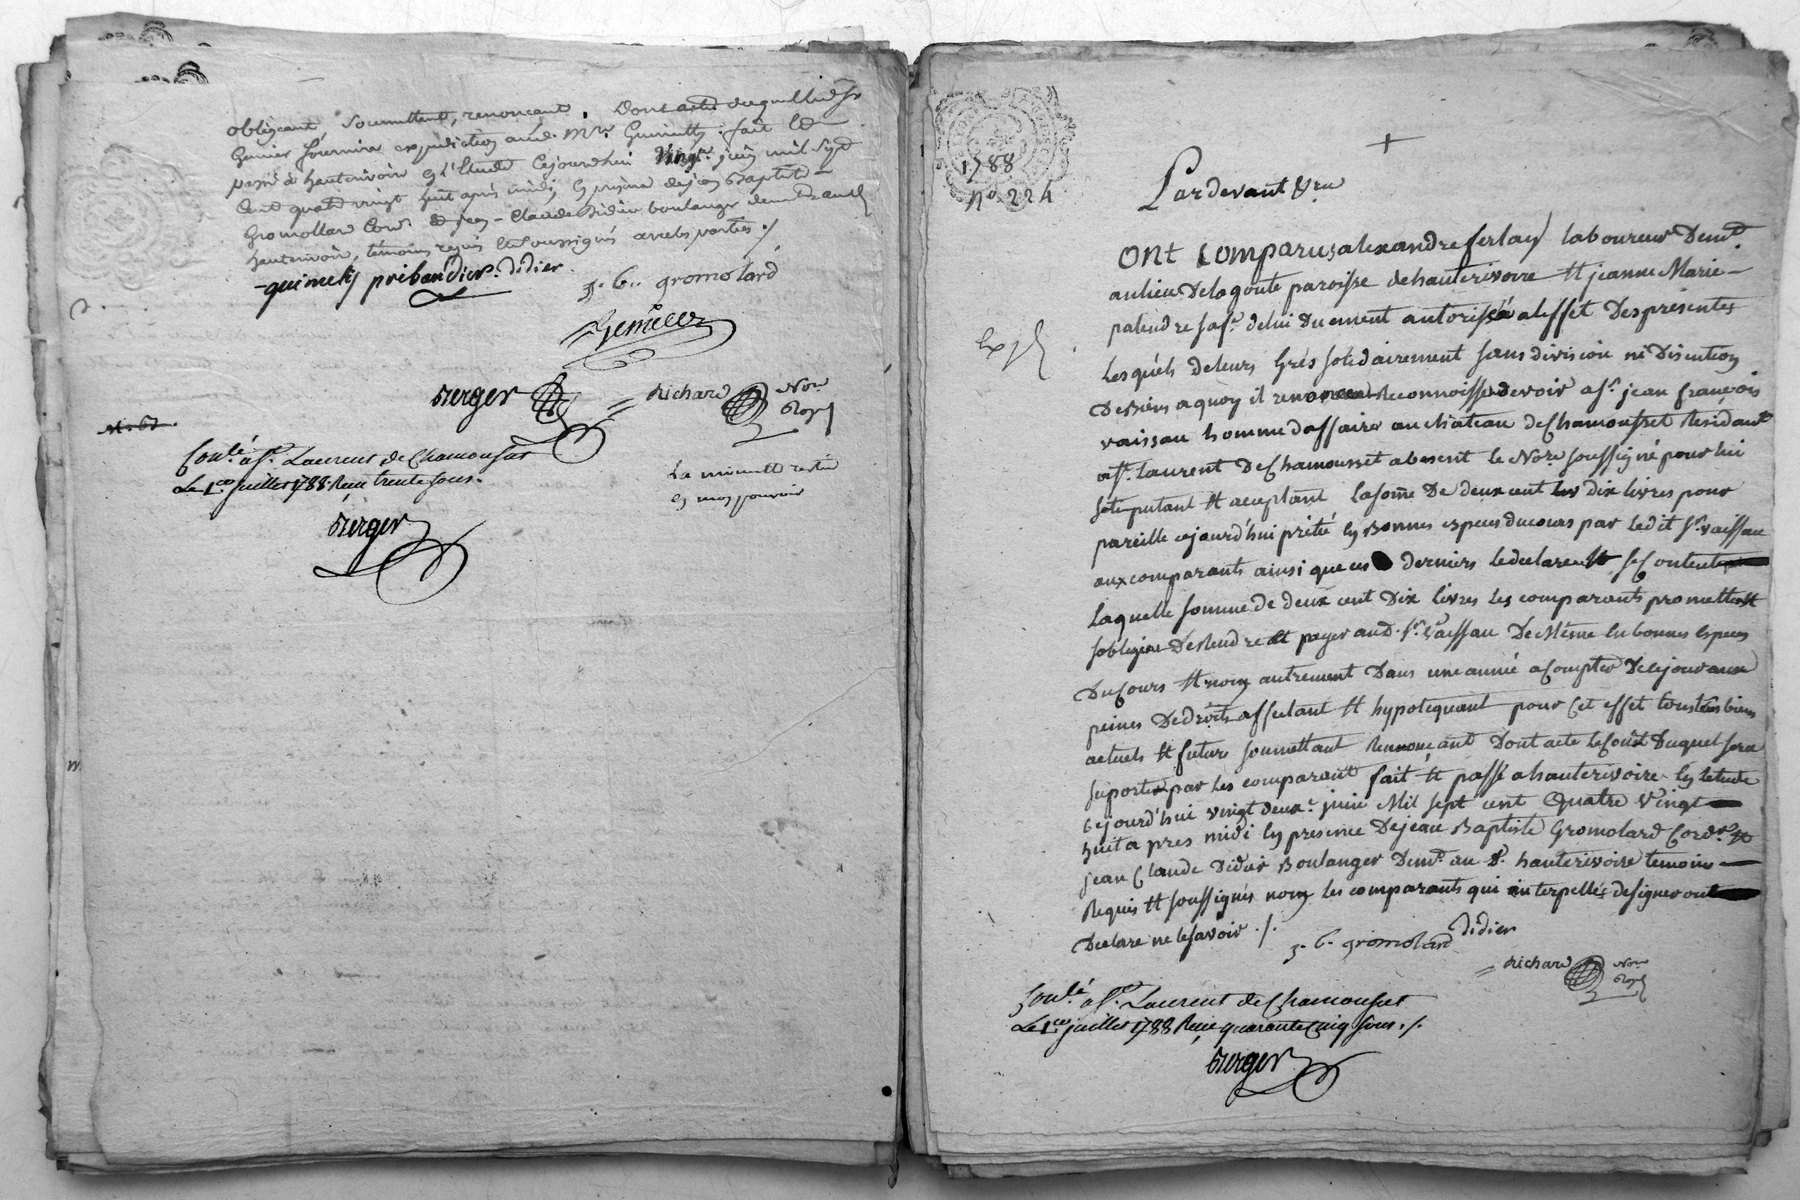 obligeant, Soumettant, renonçant. Dont acte duquel led Sr
Genier fournira expedition aud. Mre Guimetty. fait et
passé à hauterivoire en l'Etude Cejourdhui vingt juin mil sept
Cent quatre vingt huit après midi en presence de jean Baptiste
Gromollard Cord. et jean-Claude Didier boulanger demt audt
hauterivoire, témoins requis et Soussignés avec les parties ./.
didier
j. b. gromolard
Berger
richard Nore
Royal
Conlé à St. Laurent de Chamousset
Le 1er juillet 1788. Reçu trente sous.
La minutte restée
en mon pouvoir
Berger
1788
No. 224
Pardevant &ra
Ont Comparus alexandre ferlay laboureur Demt.
au lieu De la goute paroisse de hauterivoire et jeanne Marie
sa fe. de lui Duement autorisée a l'effet Des présentes
Lesquels de leurs Grés solidairement sans division ni Discution
De Biens a quoy il renoncent Reconnoisse devoir a Sr. jean françois
vaissau homme d'affaires au château de Chamousset Résidant
a St. Laurent De Chamousset absent le Nore. soussigné pour lui
stipulant et acceptant la some De deux cent dix livres pour
pareille cejourd'hui prêtée en Bonnes especes du cours par ledit Sr. vaissau
aux comparants ainsi que ces derniers le declarent et s'en contentent
Laquelle somme de deux cent Dix livres les comparants promettent
s'obligent De Rendre et payer aud. Sr. vaissau De Même en bonnes especes
Du Cours et non autrement Dans une année a Compter De ce jour aux
peines De droits affectant et hypotequant pour Cet effet tous les biens
actuels et future soumettant Renonçant Dont acte le Cout Duquel sera
suporté par les comparant fait et passé a hauterivoire en letude
Cejourd'hui vingt deux juin Mil sept cent Quatre Vingt
huit apres midi en presence De jean Baptiste Gromolard Cordr. et
jean Claude Didier Boulanger Demt. au d. hauterivoire temoins
Requis et soussignés non les comparants qui interpellés de signer ont
Declare ne le savoir ./.
j. b. gromolard didier
richard Nore
Royal
Conlé a St. Laurent de Chamousset
Le 1er juillet 1788 Reçu quarante cinq sous ./.
Berger